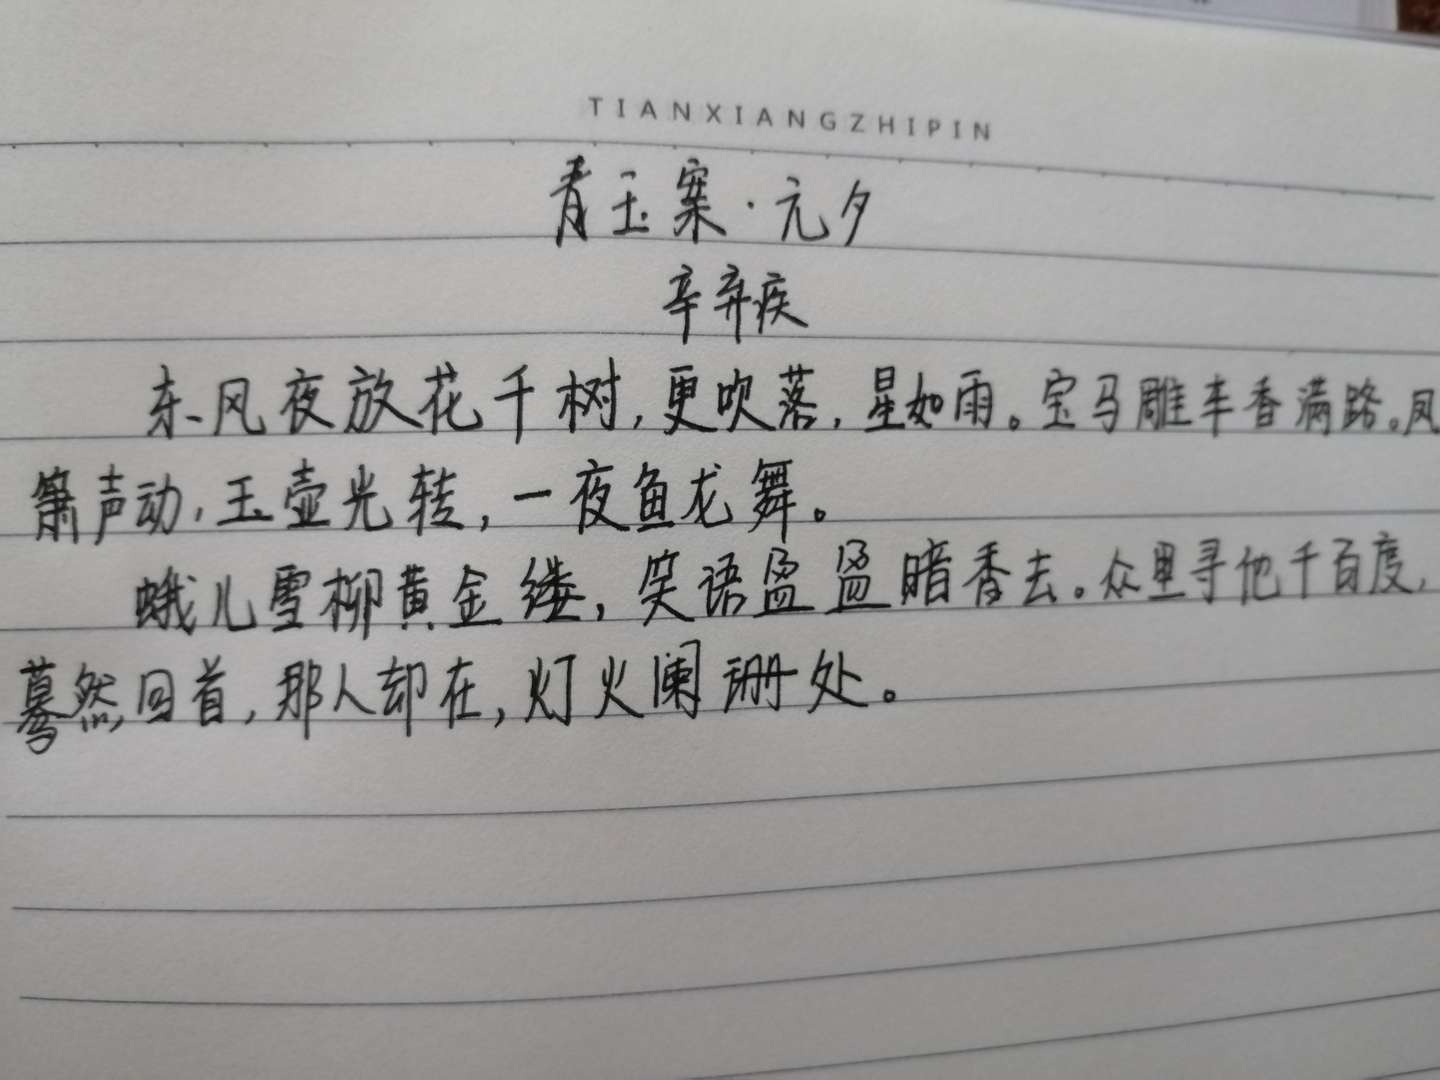 TIANXIANGZHIPIN
青玉案·元夕
辛弃疾
东风夜放花千树,更吹落,星如雨。宝马雕车香满路。凤
箫声动,玉壶光转,一夜鱼龙舞。
蛾儿雪柳黄金缕,笑语盈盈暗香去。众里寻他千百度,
蓦然回首,那人却在,灯火阑珊处。